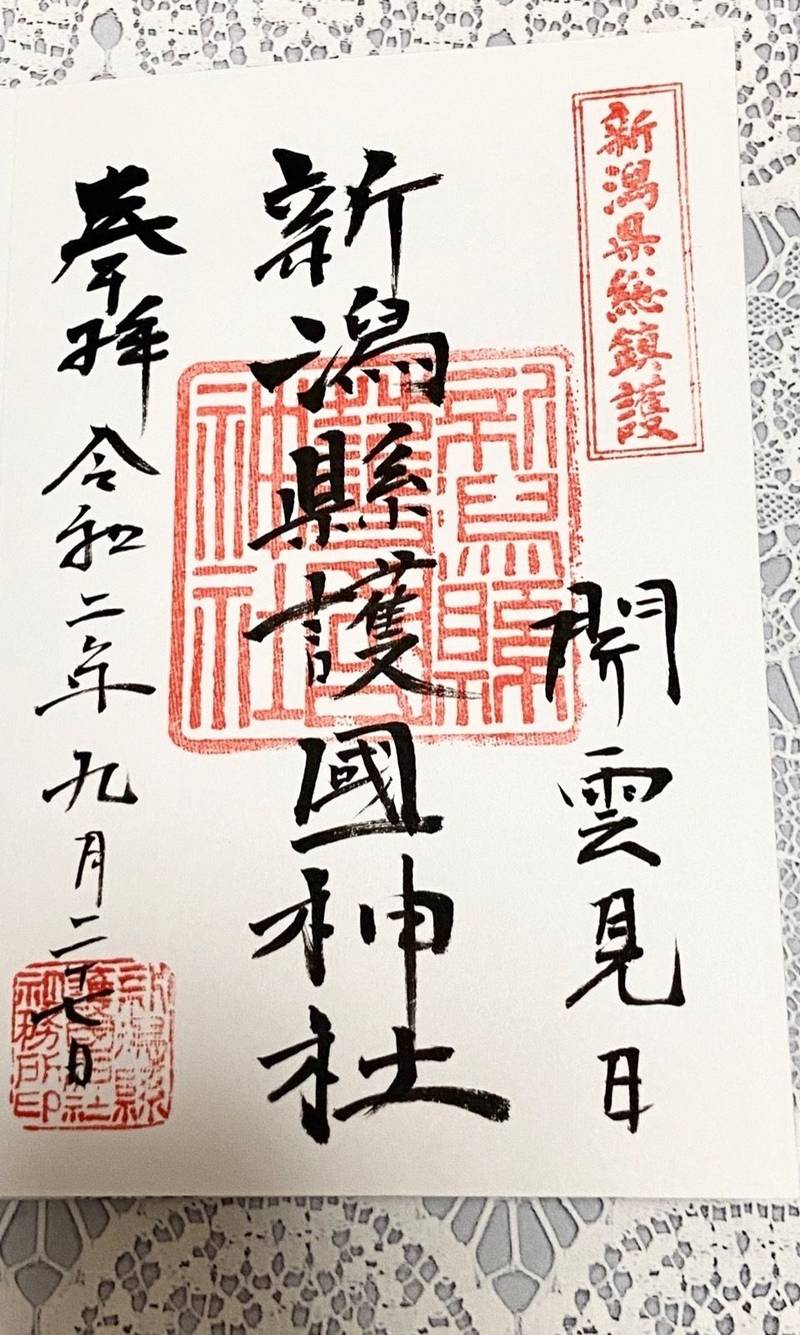 新潟県総鎮護
開雲見日
新潟縣護國神社
新潟縣護國神社
奉拝 令和二年九月二十七日
新潟縣護國神社社務所印